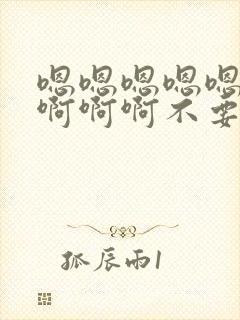 嗯嗯嗯嗯嗯
啊啊啊不要
孤辰雨1